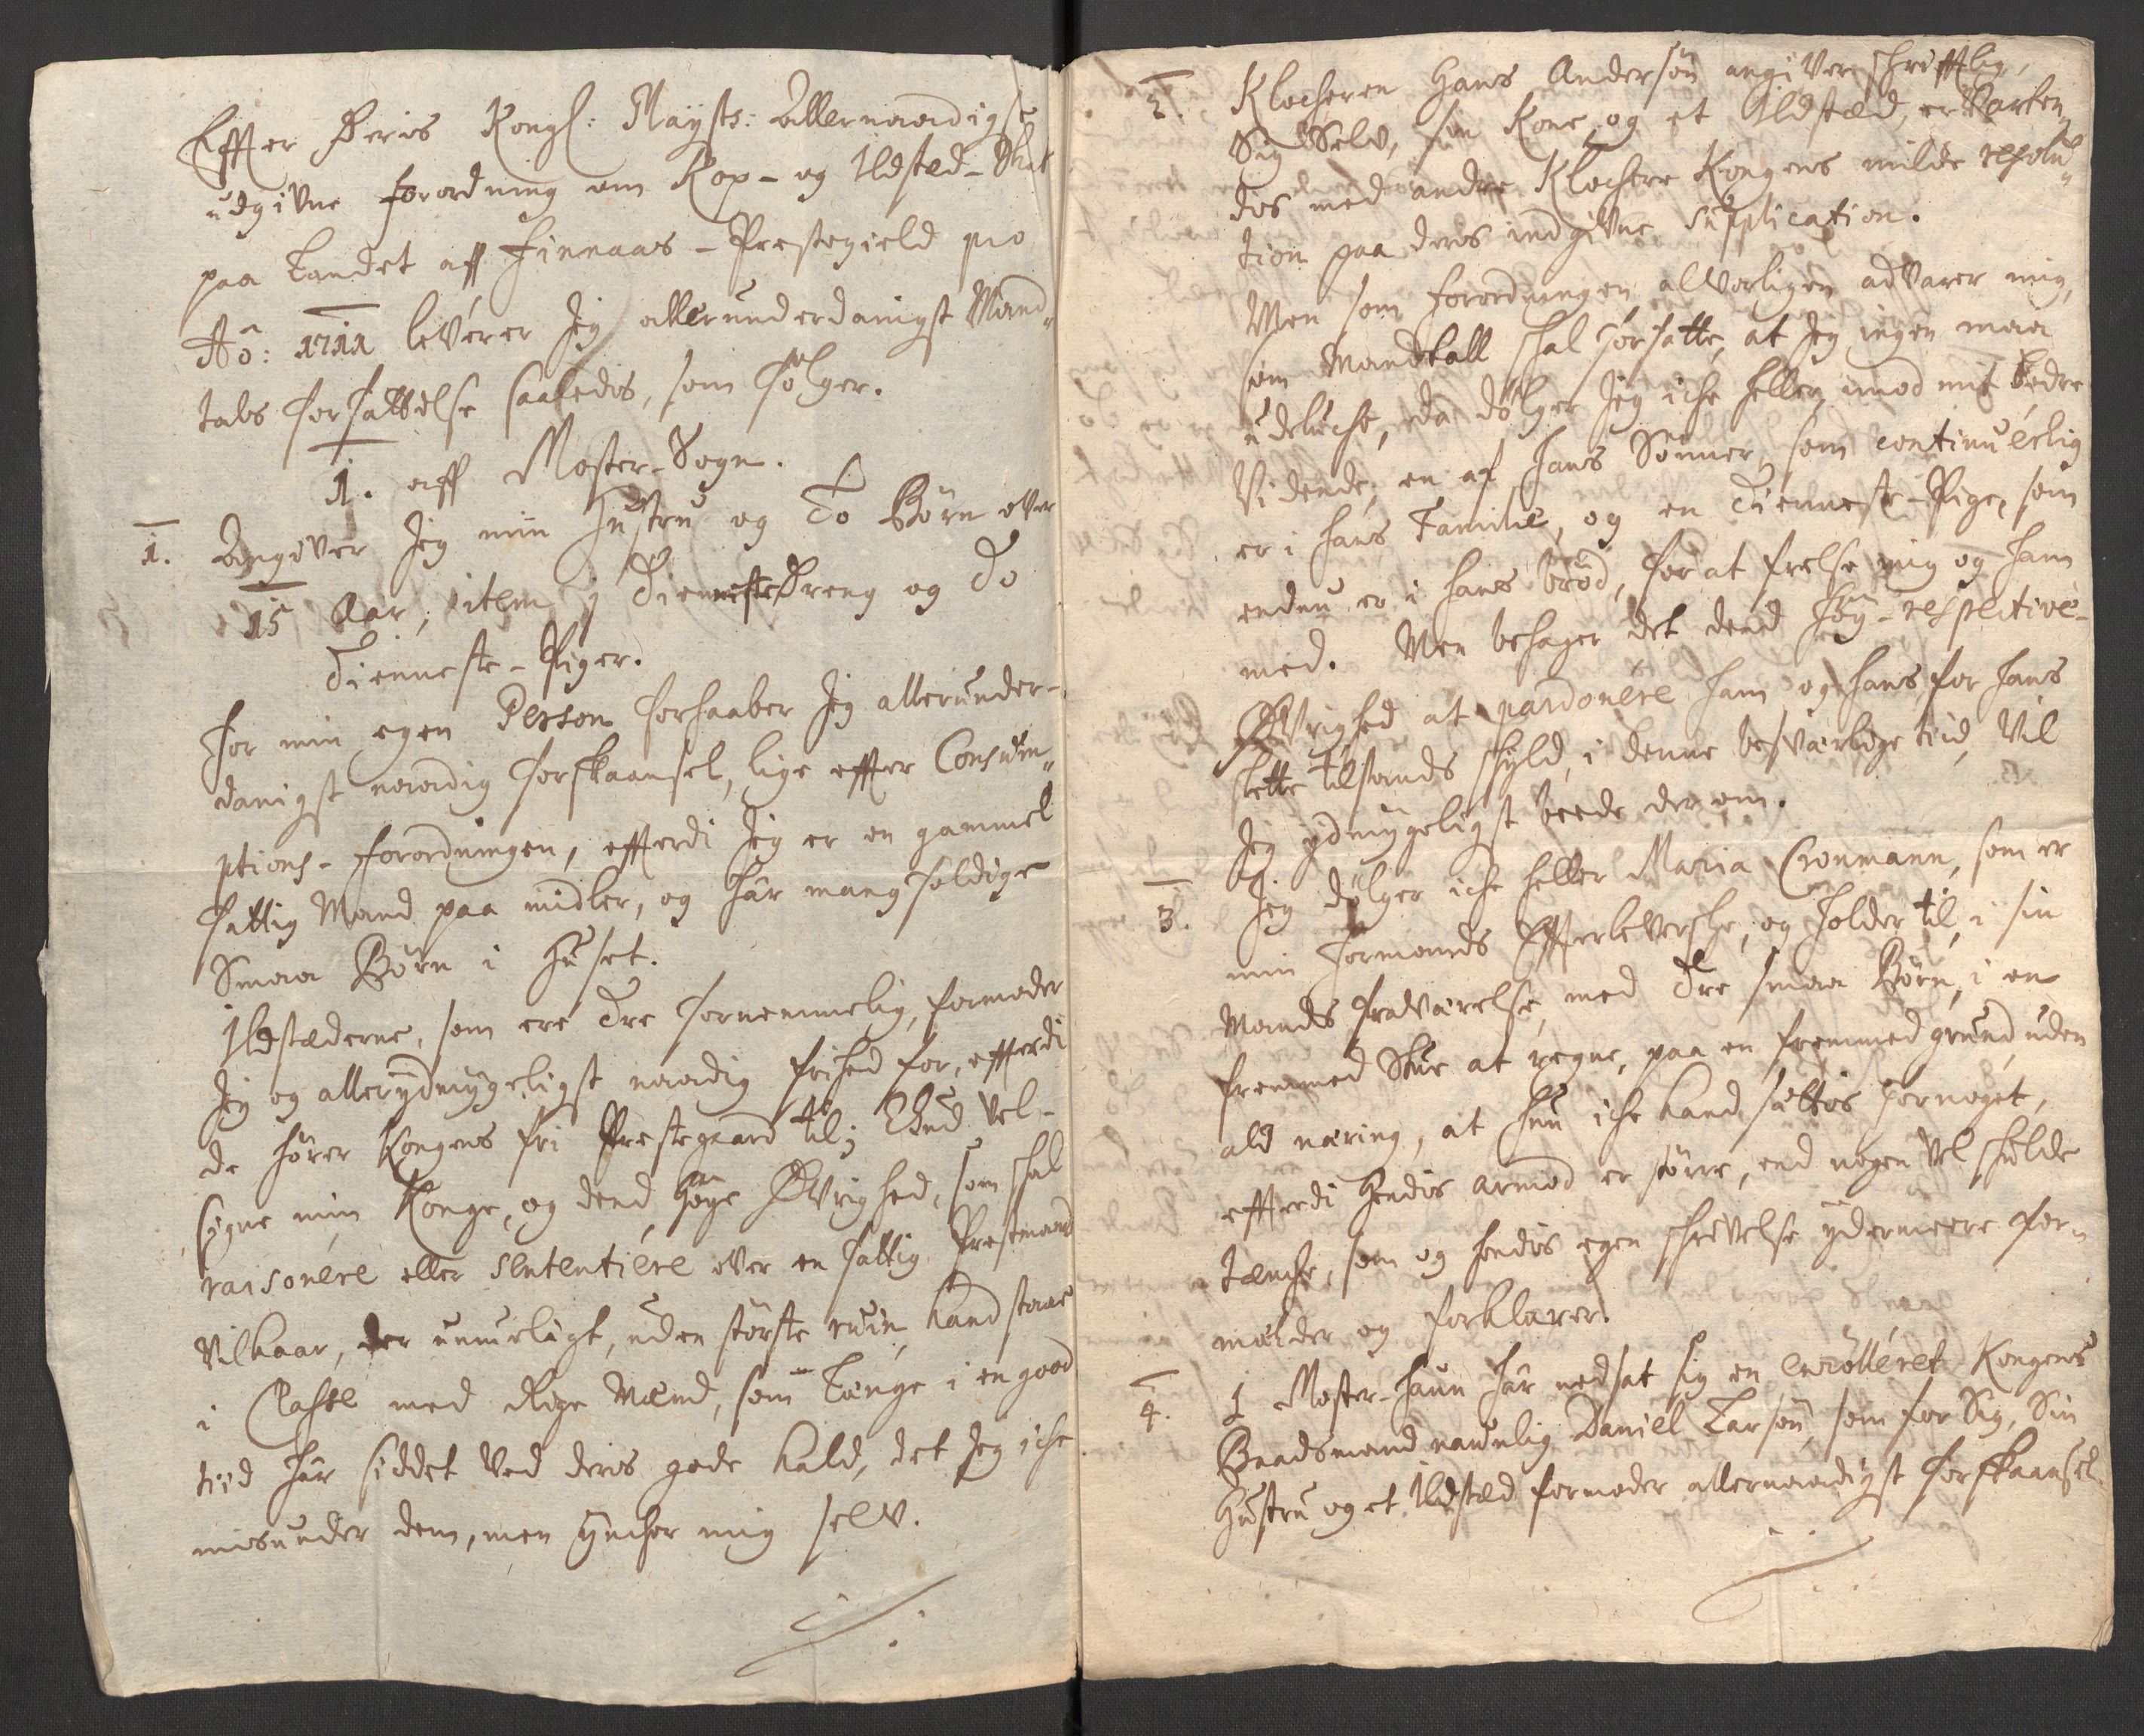 Effter Deris Kongl: Maÿsts: Allernaadigst
udgivne forordning om Kop- og Ildsted-Skat
paa Landet aff Finnaas-Prestegield pro
Aõ: 1711 leverer Jeg allerunderdanigst Mand„
tals forfattelse saaledis, som fölger.
1. aff Moster-Sogn.
1. Angiver Jeg min Hustru og To Börn over
15 Aar, item j TiennisteDreng og To
Tienneste-Piger.
For min egen Person forhaaber Jeg allerunder-
danigst naadig forskaansel, lige effter Consum„
ptions-forordningen, efftterdi Jeg er en gammel
fattig Mand paa midler, og har mangfoldige
Smaa Börn i Huset.
Ildstæderne, som ere Tre fornemmelig, formoder
Jeg og allerydmygeligst naadig frihed for, effterdi
de hörer Kongens fri Prestegaard til; Gud vel-
signe min Konge, og dend Höge Øvrighed, som skal
raisonere eller sententiere over en fattig Prestmand
Vilkaar, der umueligt, uden störste ruin, kand staae
i Classe med Rige Mænd, som længe i en good
tiid har siddet ved deris gode kald, det Jeg iche
misunder dem, men ÿnsker mig selv.
2. Klocheren Hans Andersön angiver schrifftlig,
Sig Selv, sin Kone, og et Ildstæd, er varten„
des med andre Klochere Kongens milde resolu„
tion paa deris indgivne Supplication.
Men som forordningen alvorligen advarer mig,
som Mandtall skal forfatte, at Jeg ingen maa
udeluche, da dölger Jeg iche heller, imod mit bedre
Vidende, en af hans Sönner, som continuerlig
er i hans Familie, og en Tienneste-Pige, som
endnu er i hans bröd, for at frelse mig og ham
med. Men behager det dend Höy-respective-
Øvrighed at pardonere ham og hans, for hans
slette tilstands skyld, i denne besværlige tiid, vil
Jeg ydmygeligst beede der om.
3. Jeg dölger iche heller Maria Cronmann, som er
min Formands Effterleverske, og holder til, i sin
Mands fraværelse, med Tre smaa Börn, i en
fremmed Stue at regne, paa en fremmed grund, uden
ald næring, at hun iche kand sættis for noget,
effterdi hendis armod er större, end nogen vel skulde
tænche, som og hendis egen skrivelse ydermeere for„
mælder og forklarer.
4. I Moster-Haun har nedsat sig en enrolleret Kongens
Baadsmand navnlig Daniel Larsön, som for Sig, Sin
Hustru og et Ildstæd formoder allernaadigst forskaansel.